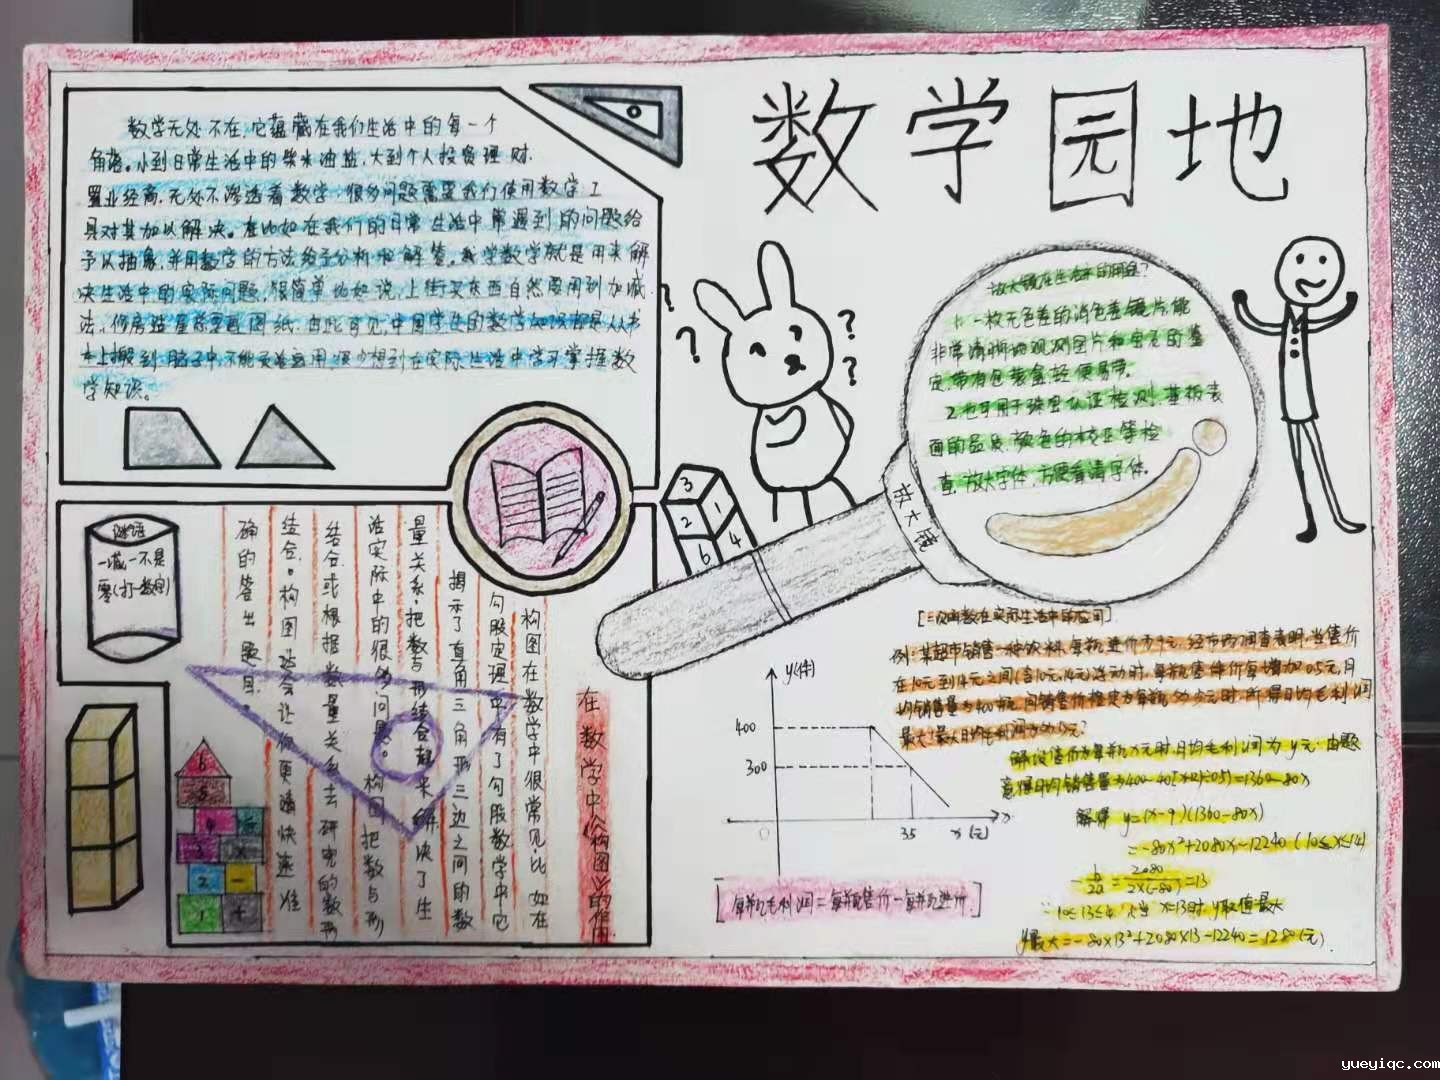 数学园地
数学无处不在，它蕴藏在我们生活中的每一个
角落。小到日常生活中的柴米油盐，大到个人投资理财，
置业经商，无处不渗透着数学，很多问题需要我们使用数学工
具对其加以解决。在比如在我们的日常生活中常遇到的问题给
予以抽象，并用数学的方法给予分析和解答。我学数学就是用来解
决生活中的实际问题，很简单比如说，上街买东西自然要用到加减
法，修房造屋总要画图纸。由此可见，中国学生的数学知识都是从书
本上搬到脑子中，不能灵活运用，很少想到在实际生活中学习掌握数
学知识。
放大镜在生活中的用途？
1. 一枚无色差的消色差镜片，能
非常清晰地观测图片和宝石的鉴
定，带有包装盒，轻便易带。
2. 也可用于珠宝认证检测，基板表
面的品质，颜色的校正等检
查，放大字体，方便看清字体。
放大镜
3
1
2
4
6
谜语
一减一不是
零（打一数学）
在数学中《构图》的作用
构图在数学中很常见，比如在
勾股定理中，有了勾股数学中它
揭示了直角三角形三边之间的数
量关系，把数与形结合起来，解决了生
活实际中的很多问题。构图把数与形
结合，或根据数量关系去研究的数形
结合。构图法会让你更精快速准
确的答出题目。
6
5
4
3
×
2
−
1
+
y(件)
400
300
0
35
x(元)
x
[每瓶毛利润=每瓶售价-每瓶进价]
[二次函数在实际生活中的应用]
例：某超市销售一种饮料，每瓶进价为9元，经市场调查表明，当售价
在10元到14元之间（含10元，14元）浮动时，每瓶售价每增加0.5元，日
均销售量为400瓶，问销售价格定为每瓶多少元时，所得日均毛利润
最大？最大日均毛利润为多少元？
解：设售价为每瓶x元时，日均毛利润为y元，由题
意得日均销售量为400-40[(x-2)÷0.5]=1360-80x
解得 y=(x-9)(1360-80x)
=-80x²+2080x-12240 (10≤x≤14)
b/2a=2080/2×(-80)=13
∵10≤13≤4 ∴当x=13时，y取值最大
y最大=-80×13²+2080×13-12240=1280(元).
yueyiqc.com